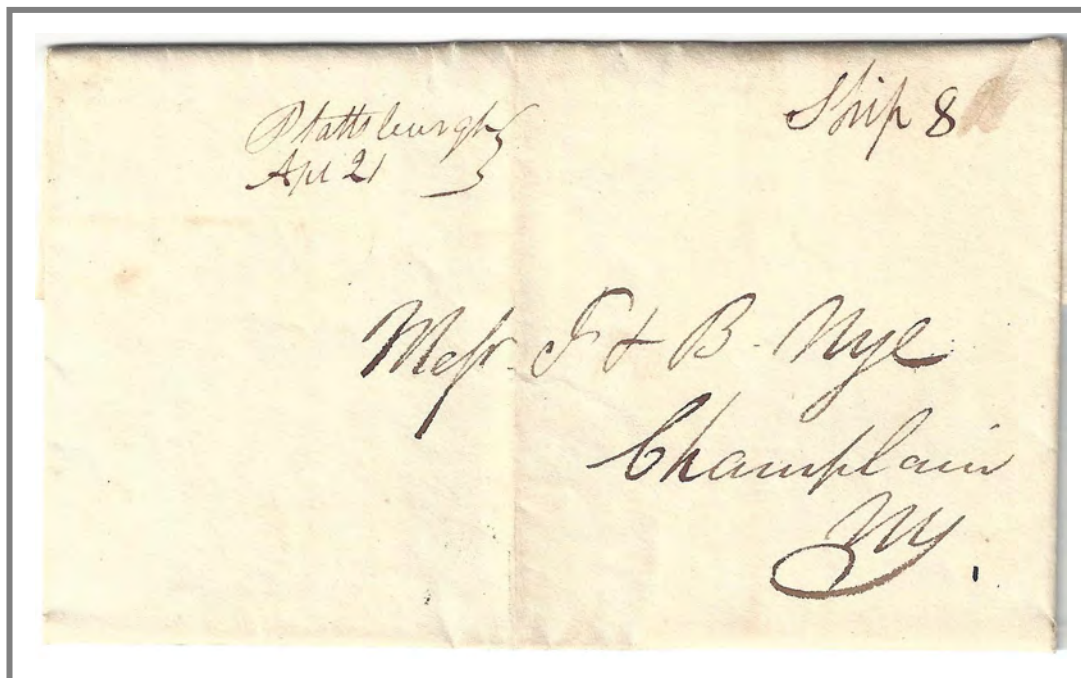 Plattsburgh
Apl 21
Ship 8
Messr. F & B. Nye
Champlain
NY.